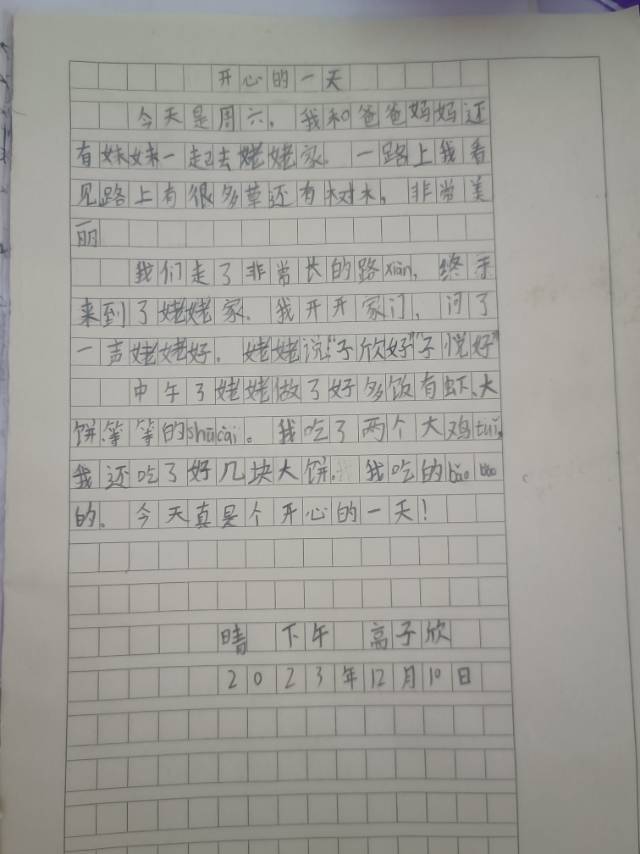 开心的一天
今天是周六，我和爸爸妈妈还
有妹妹一起去姥姥家。一路上我看
见路上有很多草还有树木，非常美
丽
我们走了非常长的路xiàn，终于
来到了姥姥家。我开开家门，问了
一声姥姥好，姥姥说“子欣好”“子悦好”
中午了姥姥做了好多饭有虾、大
饼、等等的shūcài。我吃了两个大鸡tuǐ，
我还吃了好几块大饼，我吃的bǎo bǎo
的。今天真是个开心的一天！
晴 下午 高子欣
2023年12月10日